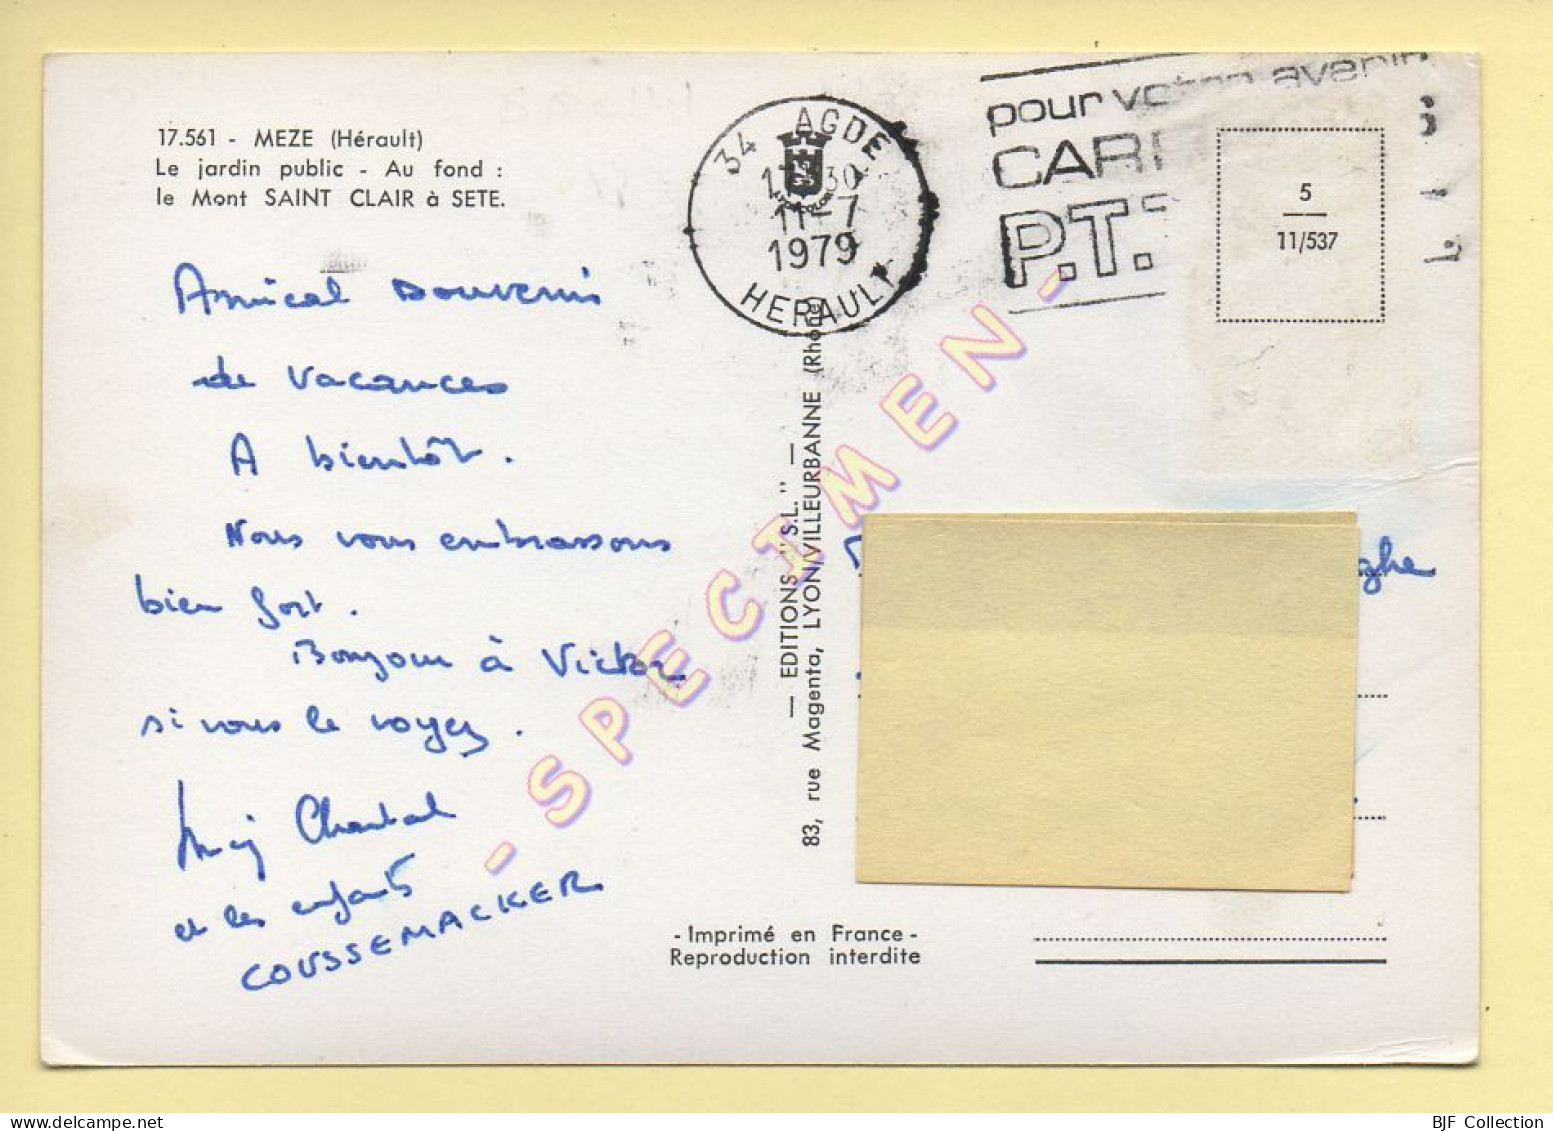 17.561 - MEZE (Hérault)
Le jardin public - Au fond :
le Mont SAINT CLAIR à SETE.
Amical souvenir
de vacances
A bientôt.
Nous vous embrassons
bien fort.
Bonjour à Victor
si vous le voyez.
Chantal
et les enfants
COUSSEMACKER
34 AGDE
30
11-7
1979
HERAULT
pour votre avenir
CAR
P.T.
5
11/537
— EDITIONS "S.L." —
83, rue Magenta, LYON/VILLEURBANNE (Rhône)
- SPECIMEN -
ghe
- Imprimé en France -
Reproduction interdite
BJF Collection